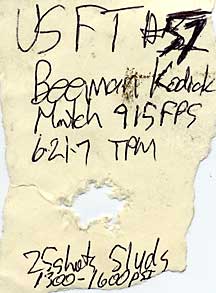 USFT #57
Beeman Kodiak
March 915FPS
6-21-7 TPM
25 shots Slugs
1300-1600 PSI